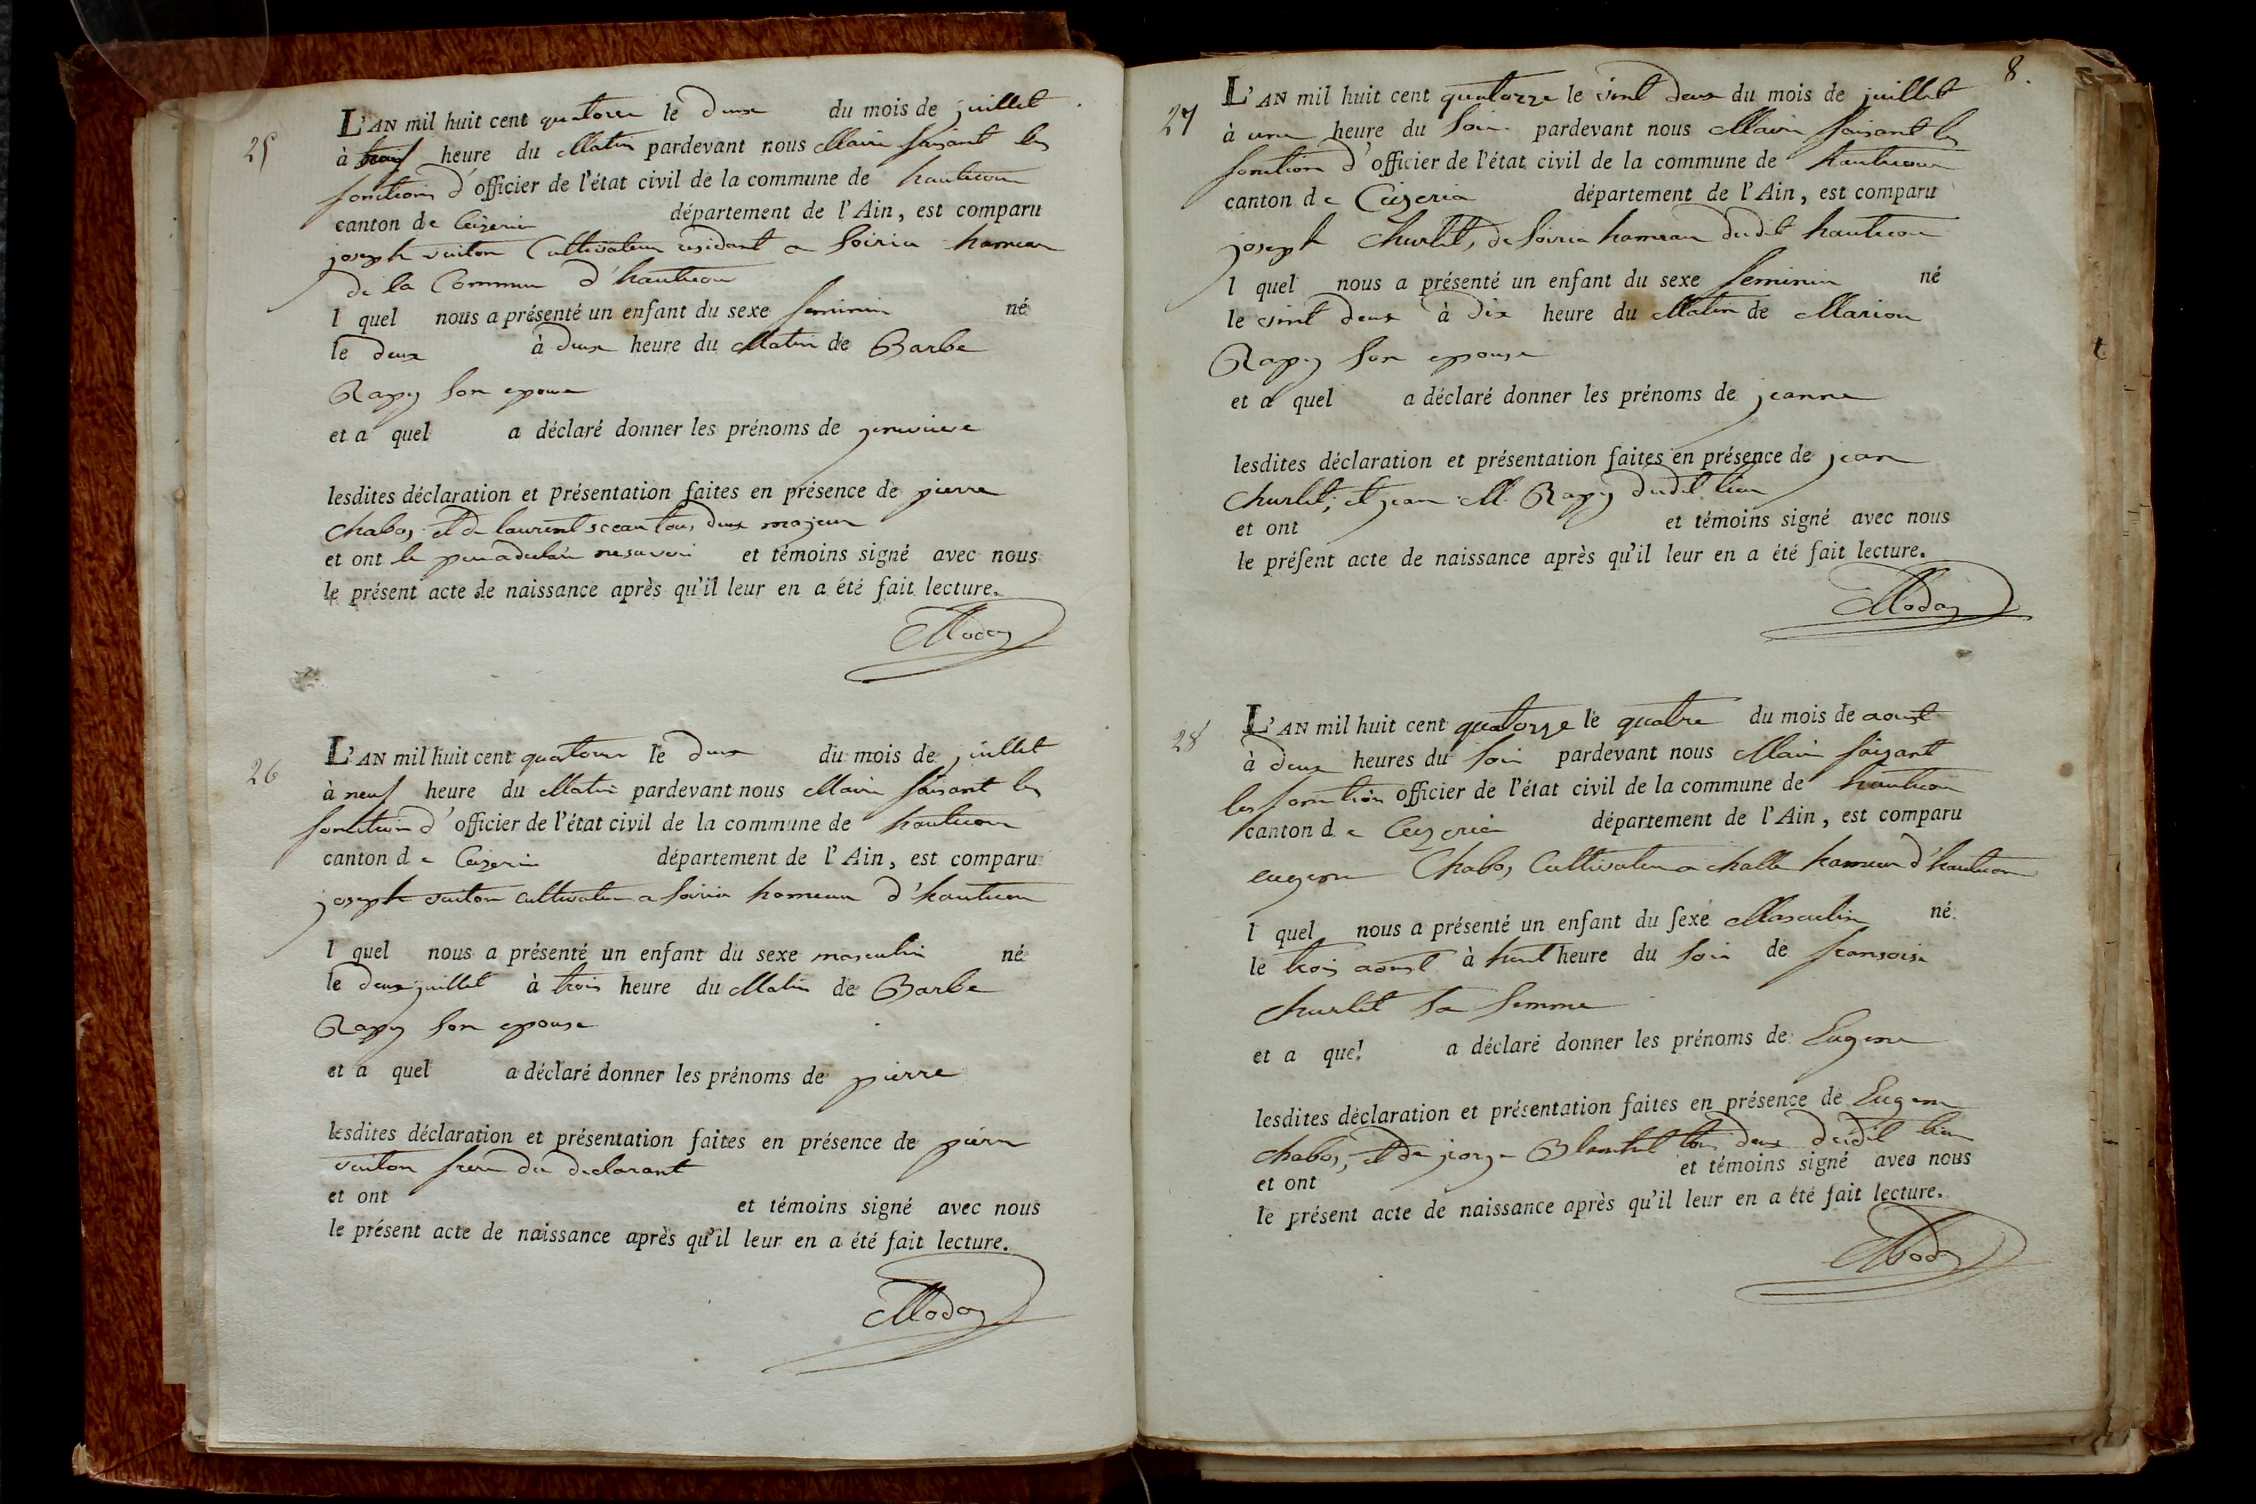 25
L'AN mil huit cent quatorze le deux du mois de juillet
à heure du Matin pardevant nous Maire faisant les
fonctions d'officier de l'état civil de la commune de hautecour
canton de Ceizeria département de l'Ain, est comparu
joseph vuiton Cultivateur residant a Soiria hameau
de la Commune d'hautecour
l quel nous a présenté un enfant du sexe feminin né
le deux à deux heure du Matin de Barbe
Rapy son epouse
et a quel a déclaré donner les prénoms de genevieve
lesdites déclaration et présentation faites en présence de pierre
chabos et de laurent tous deux majeur
et ont le pere a declaré ne savoir et témoins signé avec nous
le présent acte de naissance après qu'il leur en a été fait lecture.
Moday
26
L'AN mil huit cent quatorze le deux du mois de juillet
à neuf heure du Matin pardevant nous Maire faisant les
fonction d'officier de l'état civil de la commune de hautecour
canton d e Ceizeria département de l'Ain, est comparu
joseph vuiton cultivateur a soiria hameau d'hautecour
l quel nous a présenté un enfant du sexe masculin né
le deux juillet à trois heure du Matin de Barbe
Rapy son epouse
et a quel a déclaré donner les prénoms de pierre
lesdites déclaration et présentation faites en présence de pierre
vuiton frere du declarant
et ont et témoins signé avec nous
le présent acte de naissance après qu'il leur en a été fait lecture.
Moday
8.
27
L'AN mil huit cent quatorze le vint deux du mois de juillet
à une heure du Soir pardevant nous Maire faisant les
fonction d'officier de l'état civil de la commune de hautecour
canton d e Ceizeria département de l'Ain, est comparu
joseph Churlet, de Soiria hameau dudit hautecour
l quel nous a présenté un enfant du sexe feminin né
le vint deux à dix heure du Matin de Marion
Rapy son epouse
et a quel a déclaré donner les prénoms de jeanne
lesdites déclaration et présentation faites en présence de jean
churlet, et jean M. Rapy dudit lieu
et ont et témoins signé avec nous
le présent acte de naissance après qu'il leur en a été fait lecture.
Moday
28
L'AN mil huit cent quatorze le quatre du mois de aoust
à deux heures du Soir pardevant nous Maire faisant
les fonction officier de l'état civil de la commune de hautecour
canton d e Ceizeria département de l'Ain, est comparu
eugene Chabos Cultivateur a challe hameau d'hautecour
l quel nous a présenté un enfant du sexe Masculin né
le trois aoust à huit heure du Soir de fransoise
churlet sa femme
et a quel a déclaré donner les prénoms de Eugene
lesdites déclaration et présentation faites en présence de Eugene
chabos, et de tous deux dudit lieu
et ont et témoins signé avec nous
le présent acte de naissance après qu'il leur en a été fait lecture.
Moday